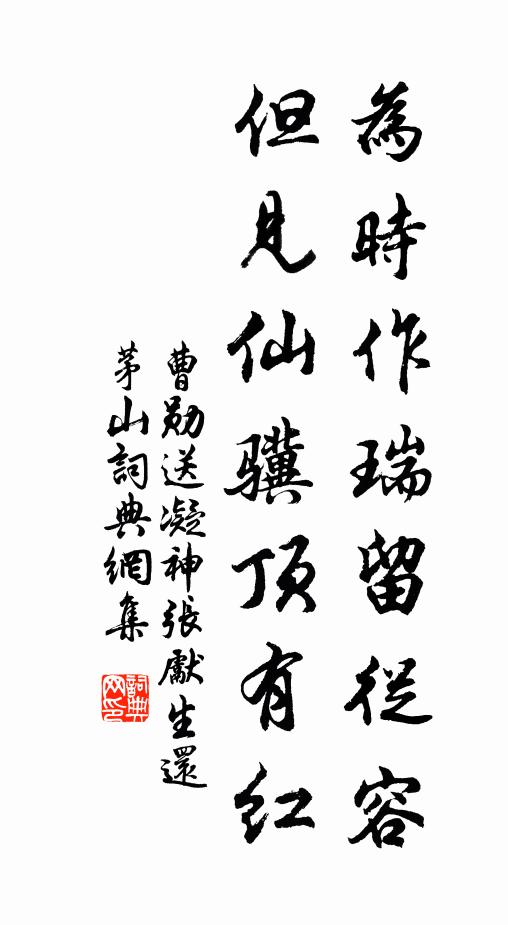 為時作瑞留從容
但見仙驥顶有红
曹勋送凝神張獻生還
茅山詞典網集
詞典网印